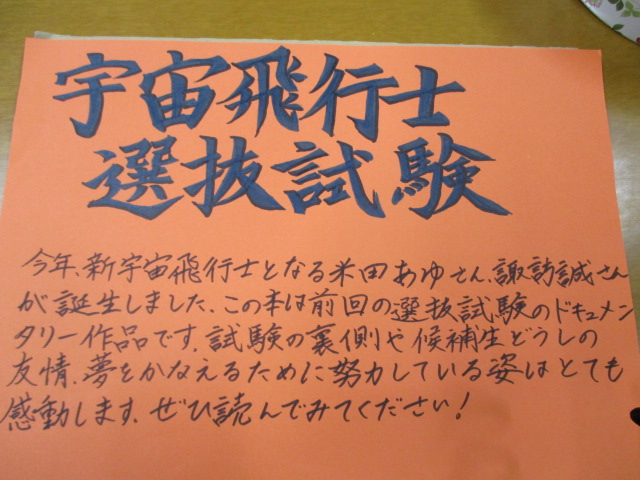 宇宙飛行士
選抜試験
今年、新宇宙飛行士となる米田あゆさん、諏訪誠さん
が誕生しました。この本は前回の選抜試験のドキュメン
タリー作品です。試験の裏側や候補生どうしの
友情、夢をかなえるために努力している姿はとても
感動します。ぜひ読んでみてください!